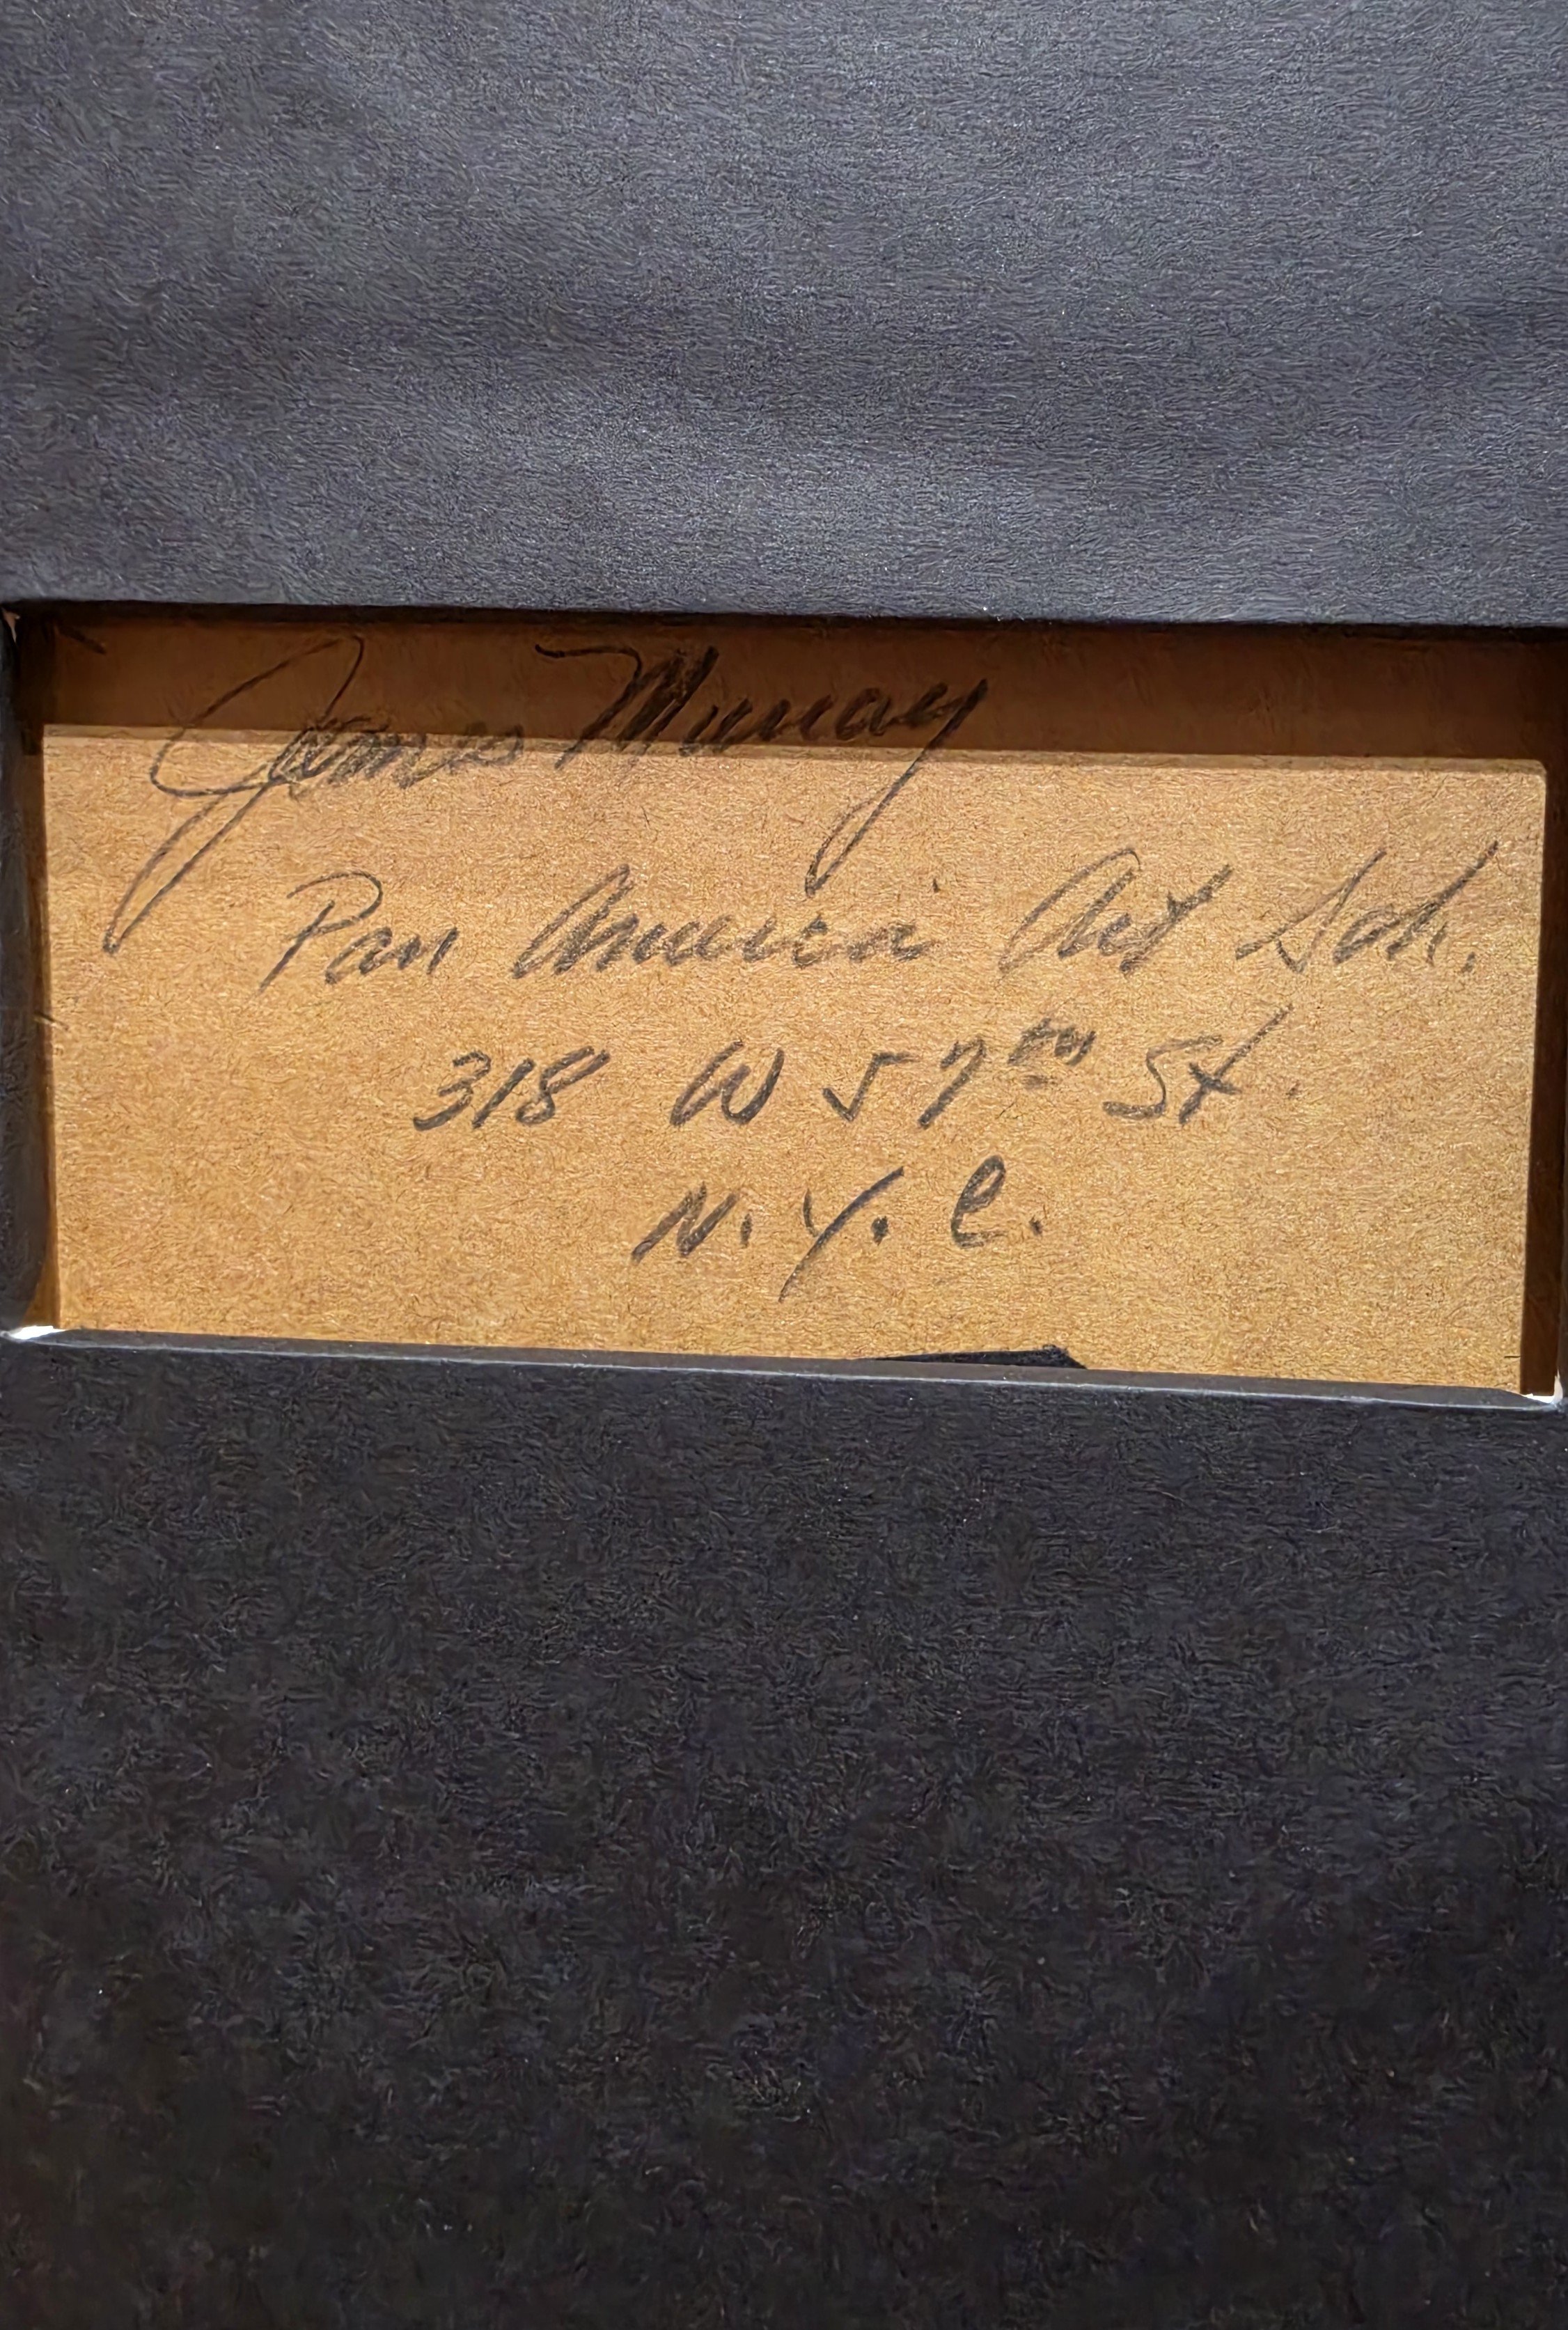 James Murray
Pan America Art Sch.
318 W 57th St.
N.Y.C.